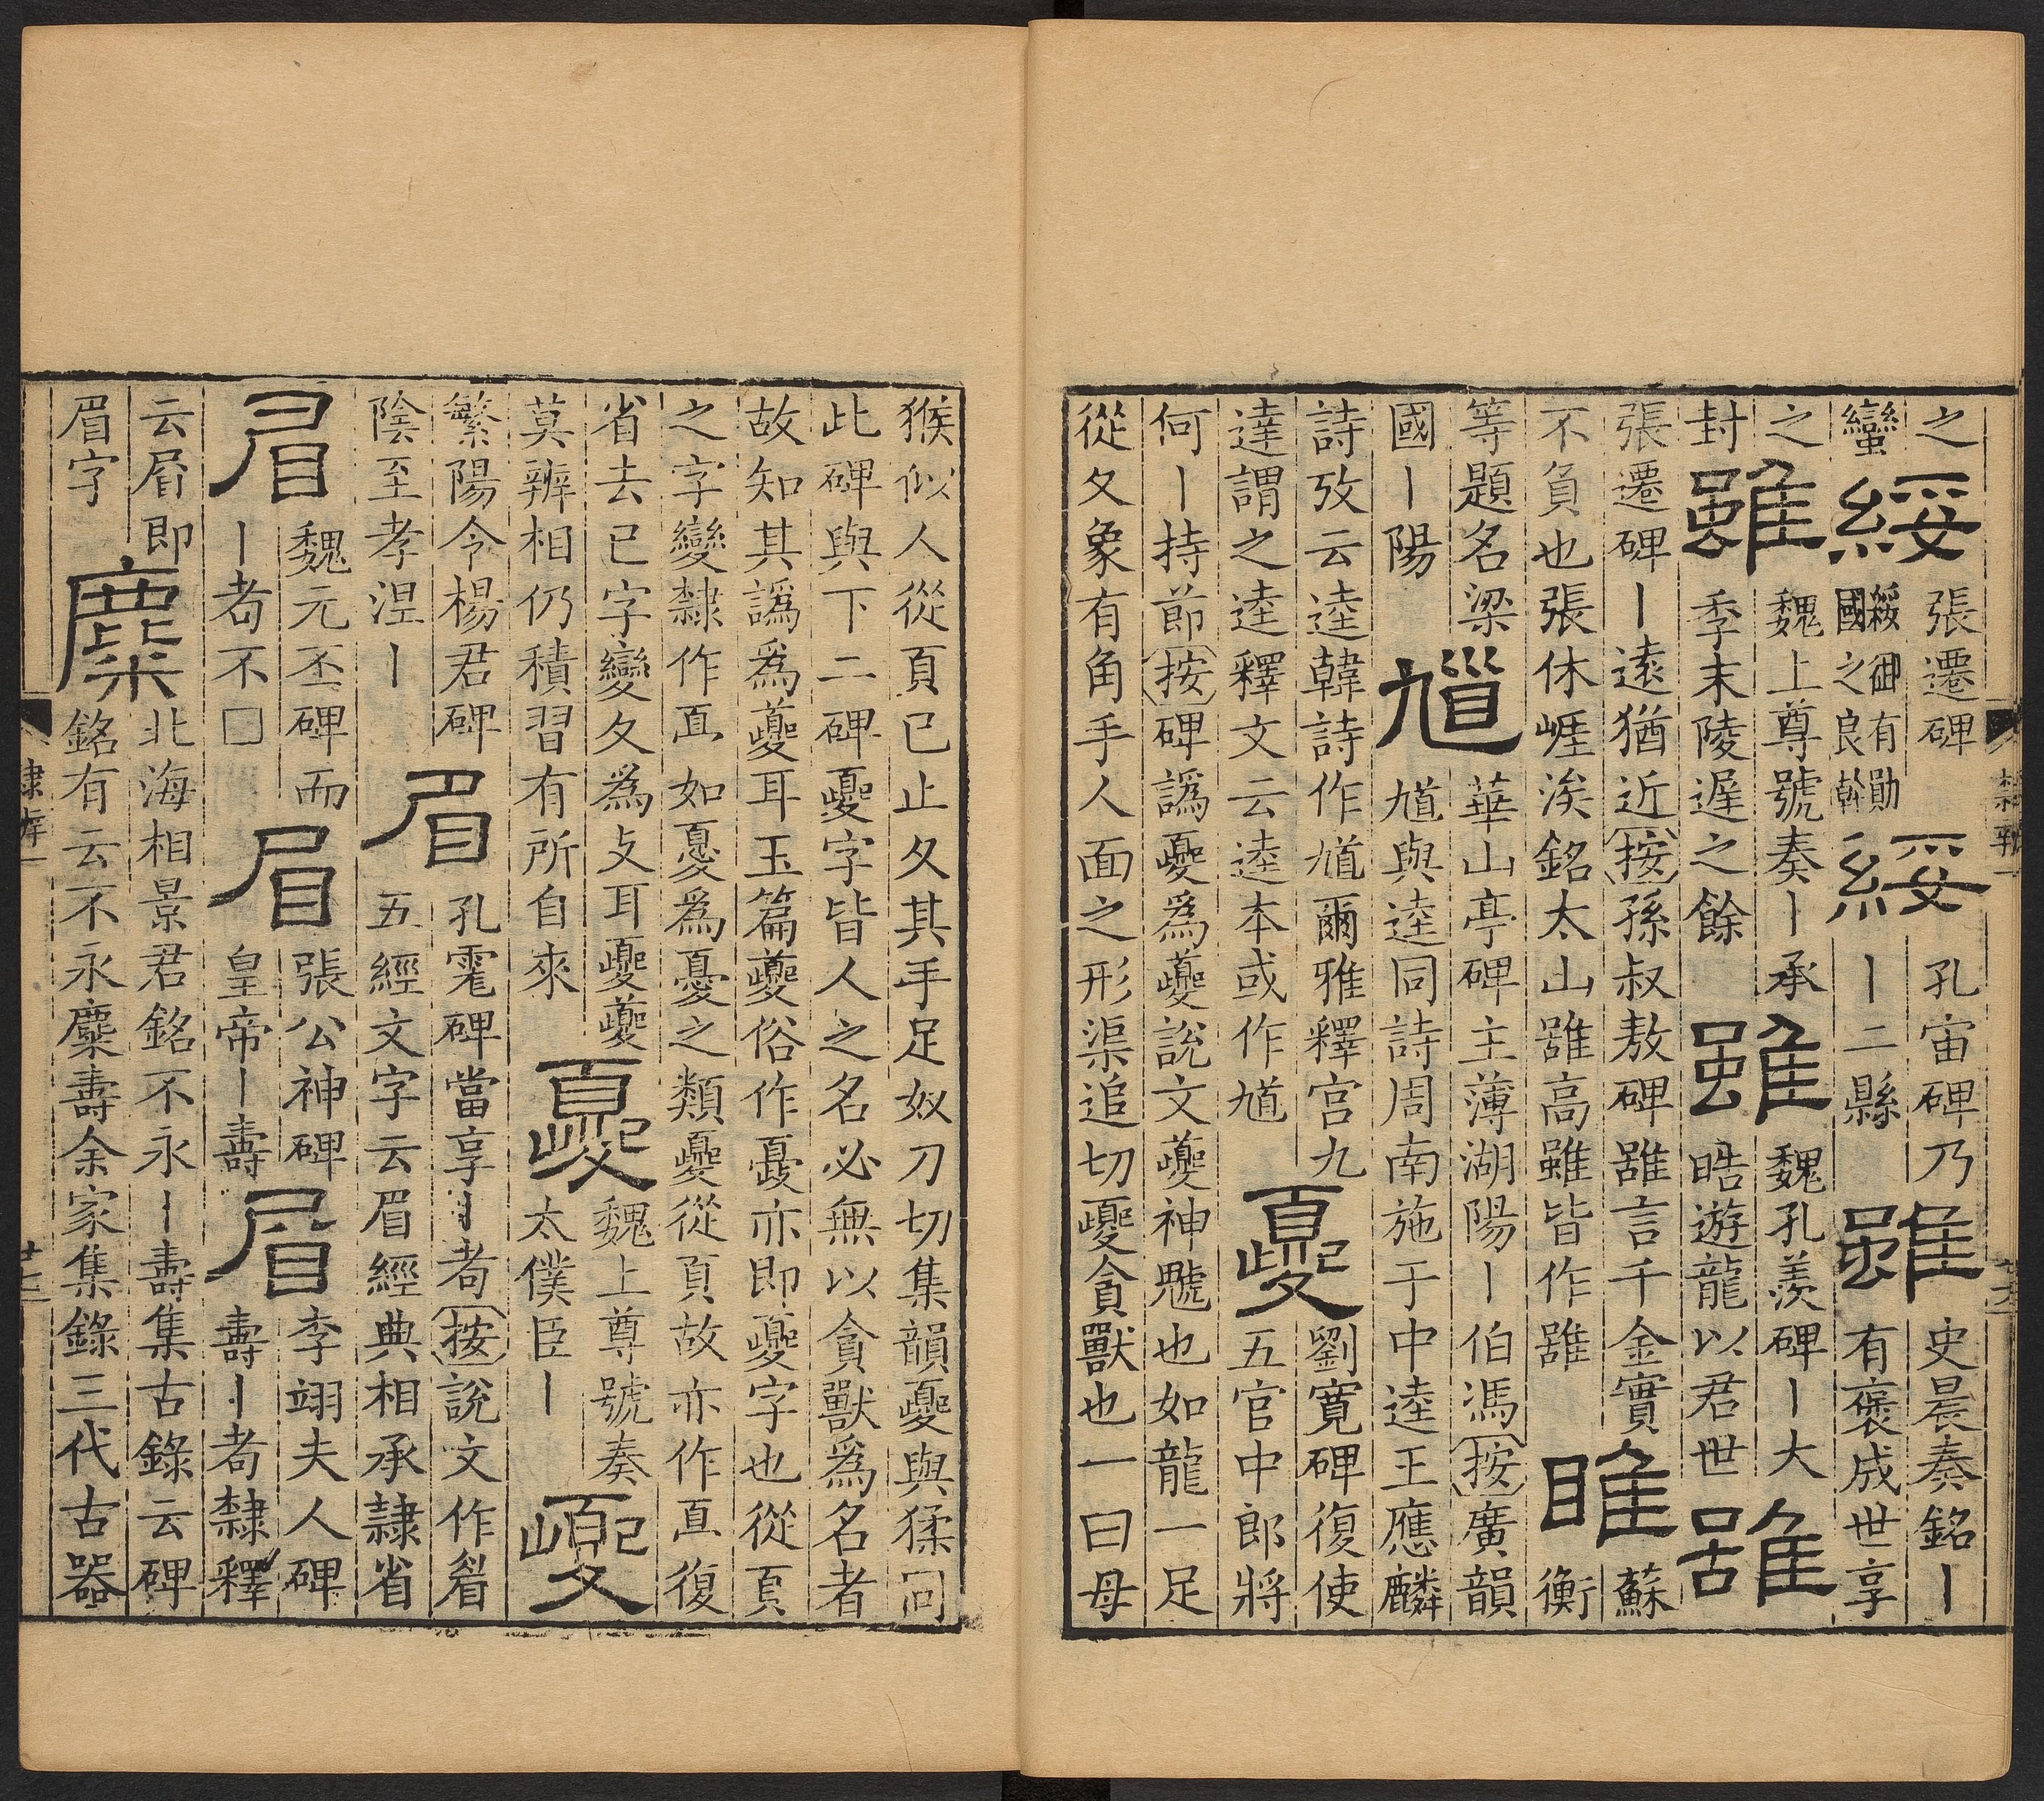 之
蠻
綏
張遷碑
綏御有勛
國之良幹
綏
孔宙碑乃
丨二縣
雖
史晨奏銘丨
有褒成世享
之
封
雖
魏上尊號奏丨承
季末陵遲之餘
雖
魏孔羨碑丨大
皓遊龍以君世
雖
張遷碑丨遠猶近按孫叔敖碑雖言千金實
不負也張休崕涘銘太山雖高雖皆作雖
睢
蘇
衡
等題名梁
國丨陽
馗
華山亭碑主薄湖陽丨伯馮按廣韻
馗與逵同詩周南施于中逵王應麟
詩攷云逵韓詩作馗爾雅釋宮九
達謂之逵逵釋文云逵本或作馗
夒
劉寬碑復使
五官中郎將
何丨持節按碑譌夒爲夔說文夔神魖也如龍一足
從夊象有角手人面之形渠追切夒貪獸也一曰母
猴似人從頁已止夊其手足奴刀切集韻夒與猱同
此碑與下二碑夒字皆人之名必無以貪獸爲名者
故知其譌爲夔耳玉篇夔俗作㥑亦即夒字也從頁
之字變隸作𦣻如㥑爲憂之類夒從頁故亦作𦣻復
省去已字變夊爲攴耳夒夔
莫辨相仍積習有所自來
夒
魏上尊號奏
太僕臣丨
夒
繁陽令楊君碑
陰至孝涅丨
眉
孔宙碑當享丨耇按說文作睂
五經文字云眉經典相承隷省
眉
魏元丕碑而
丨耇不□
眉
張公神碑
皇帝丨壽
眉
李翊夫人碑
壽丨耇隸釋
云眉即
眉字
麋
北海相景君銘不永丨壽集古錄云碑
銘有云不永麋壽余家集錄三代古器